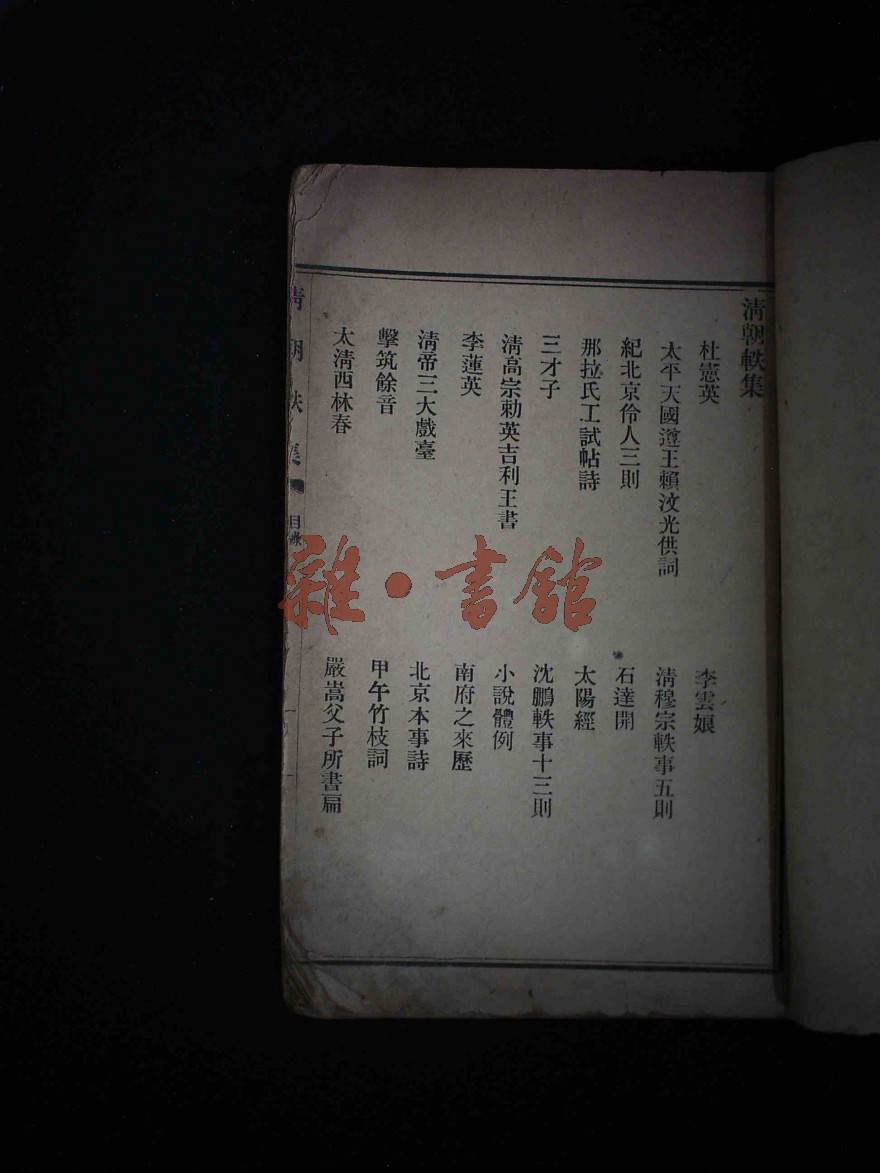 清朝軼集
杜憲英
李雲娘
太平天國遵王賴汶光供詞
清穆宗軼事五則
紀北京伶人三則
石達開
那拉氏工試帖詩
太陽經
三才子
沈鵬軼事十三則
清高宗勅英吉利王書
小說體例
李蓮英
南府之來歷
清帝三大戲臺
北京本事詩
擊筑餘音
甲午竹枝詞
太淸西林春
嚴嵩父子所書扁
清朝軼集
目錄
一
雜·書館